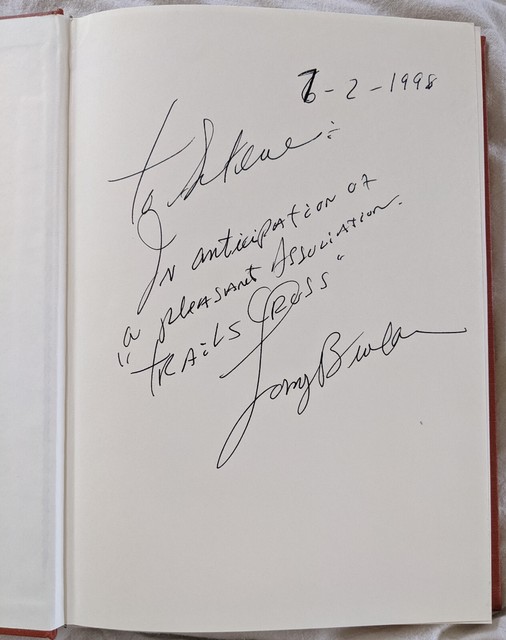 -2-1998
To Steve:
In anticipation of
a pleasant Association.
"TRAILS CROSS"
Tony